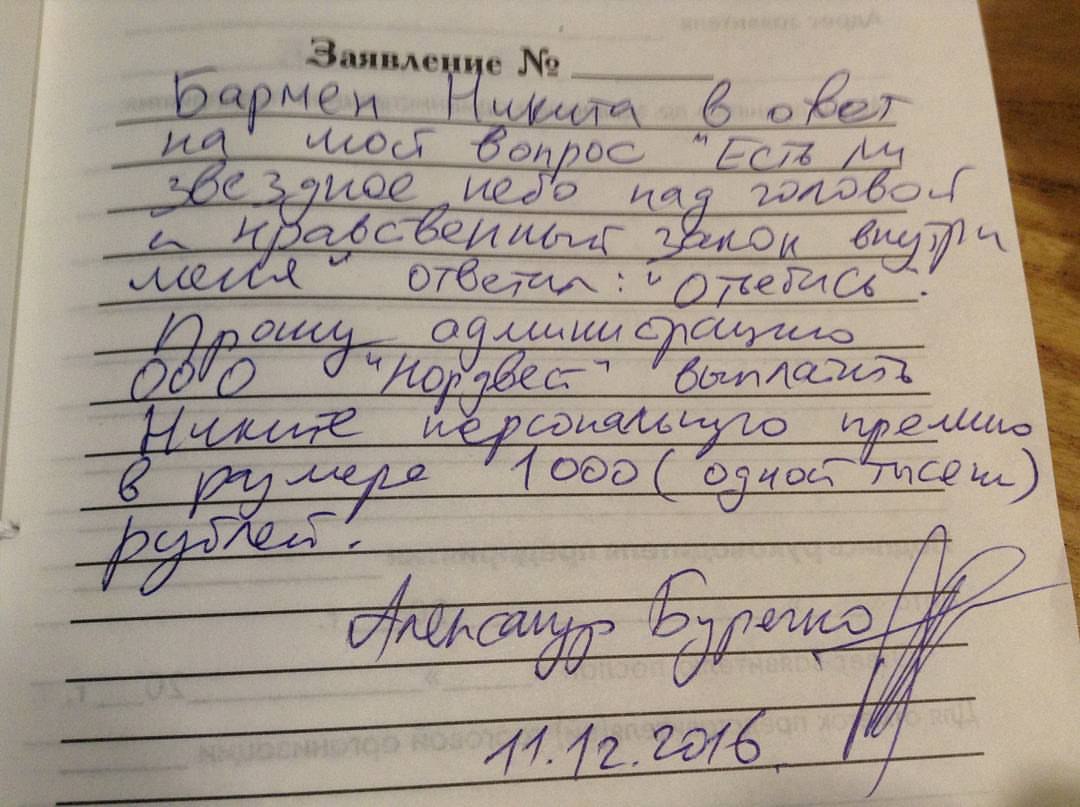 Заявление №
Бармен Никита в ответ
на мой вопрос "Есть ли
звездное небо над головой
и нравственный закон внутри
меня" ответил: "Отъебись".
Прошу администрацию
ООО "Нордвест" выплатить
Никите персональную премию
в размере 1000 (одной тысячи)
рублей.
Александр
11.12.2016